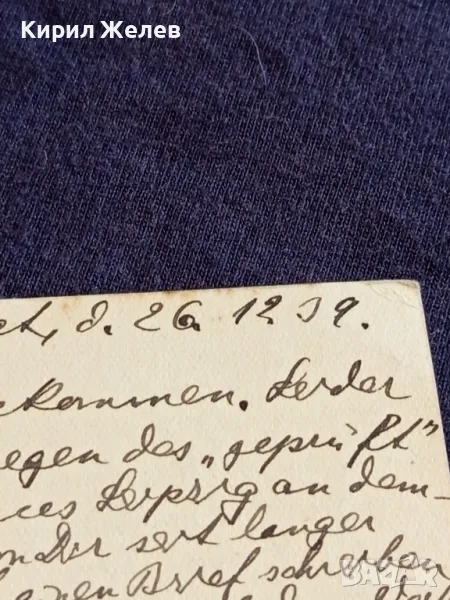 Кирил Желев
et, d. 26. 12. 39.
ekommen. Leider
egen des „geprüft"
ces Leipzig an dem-
on Dir seit langer
einen Brief schreiben
bazar.bg